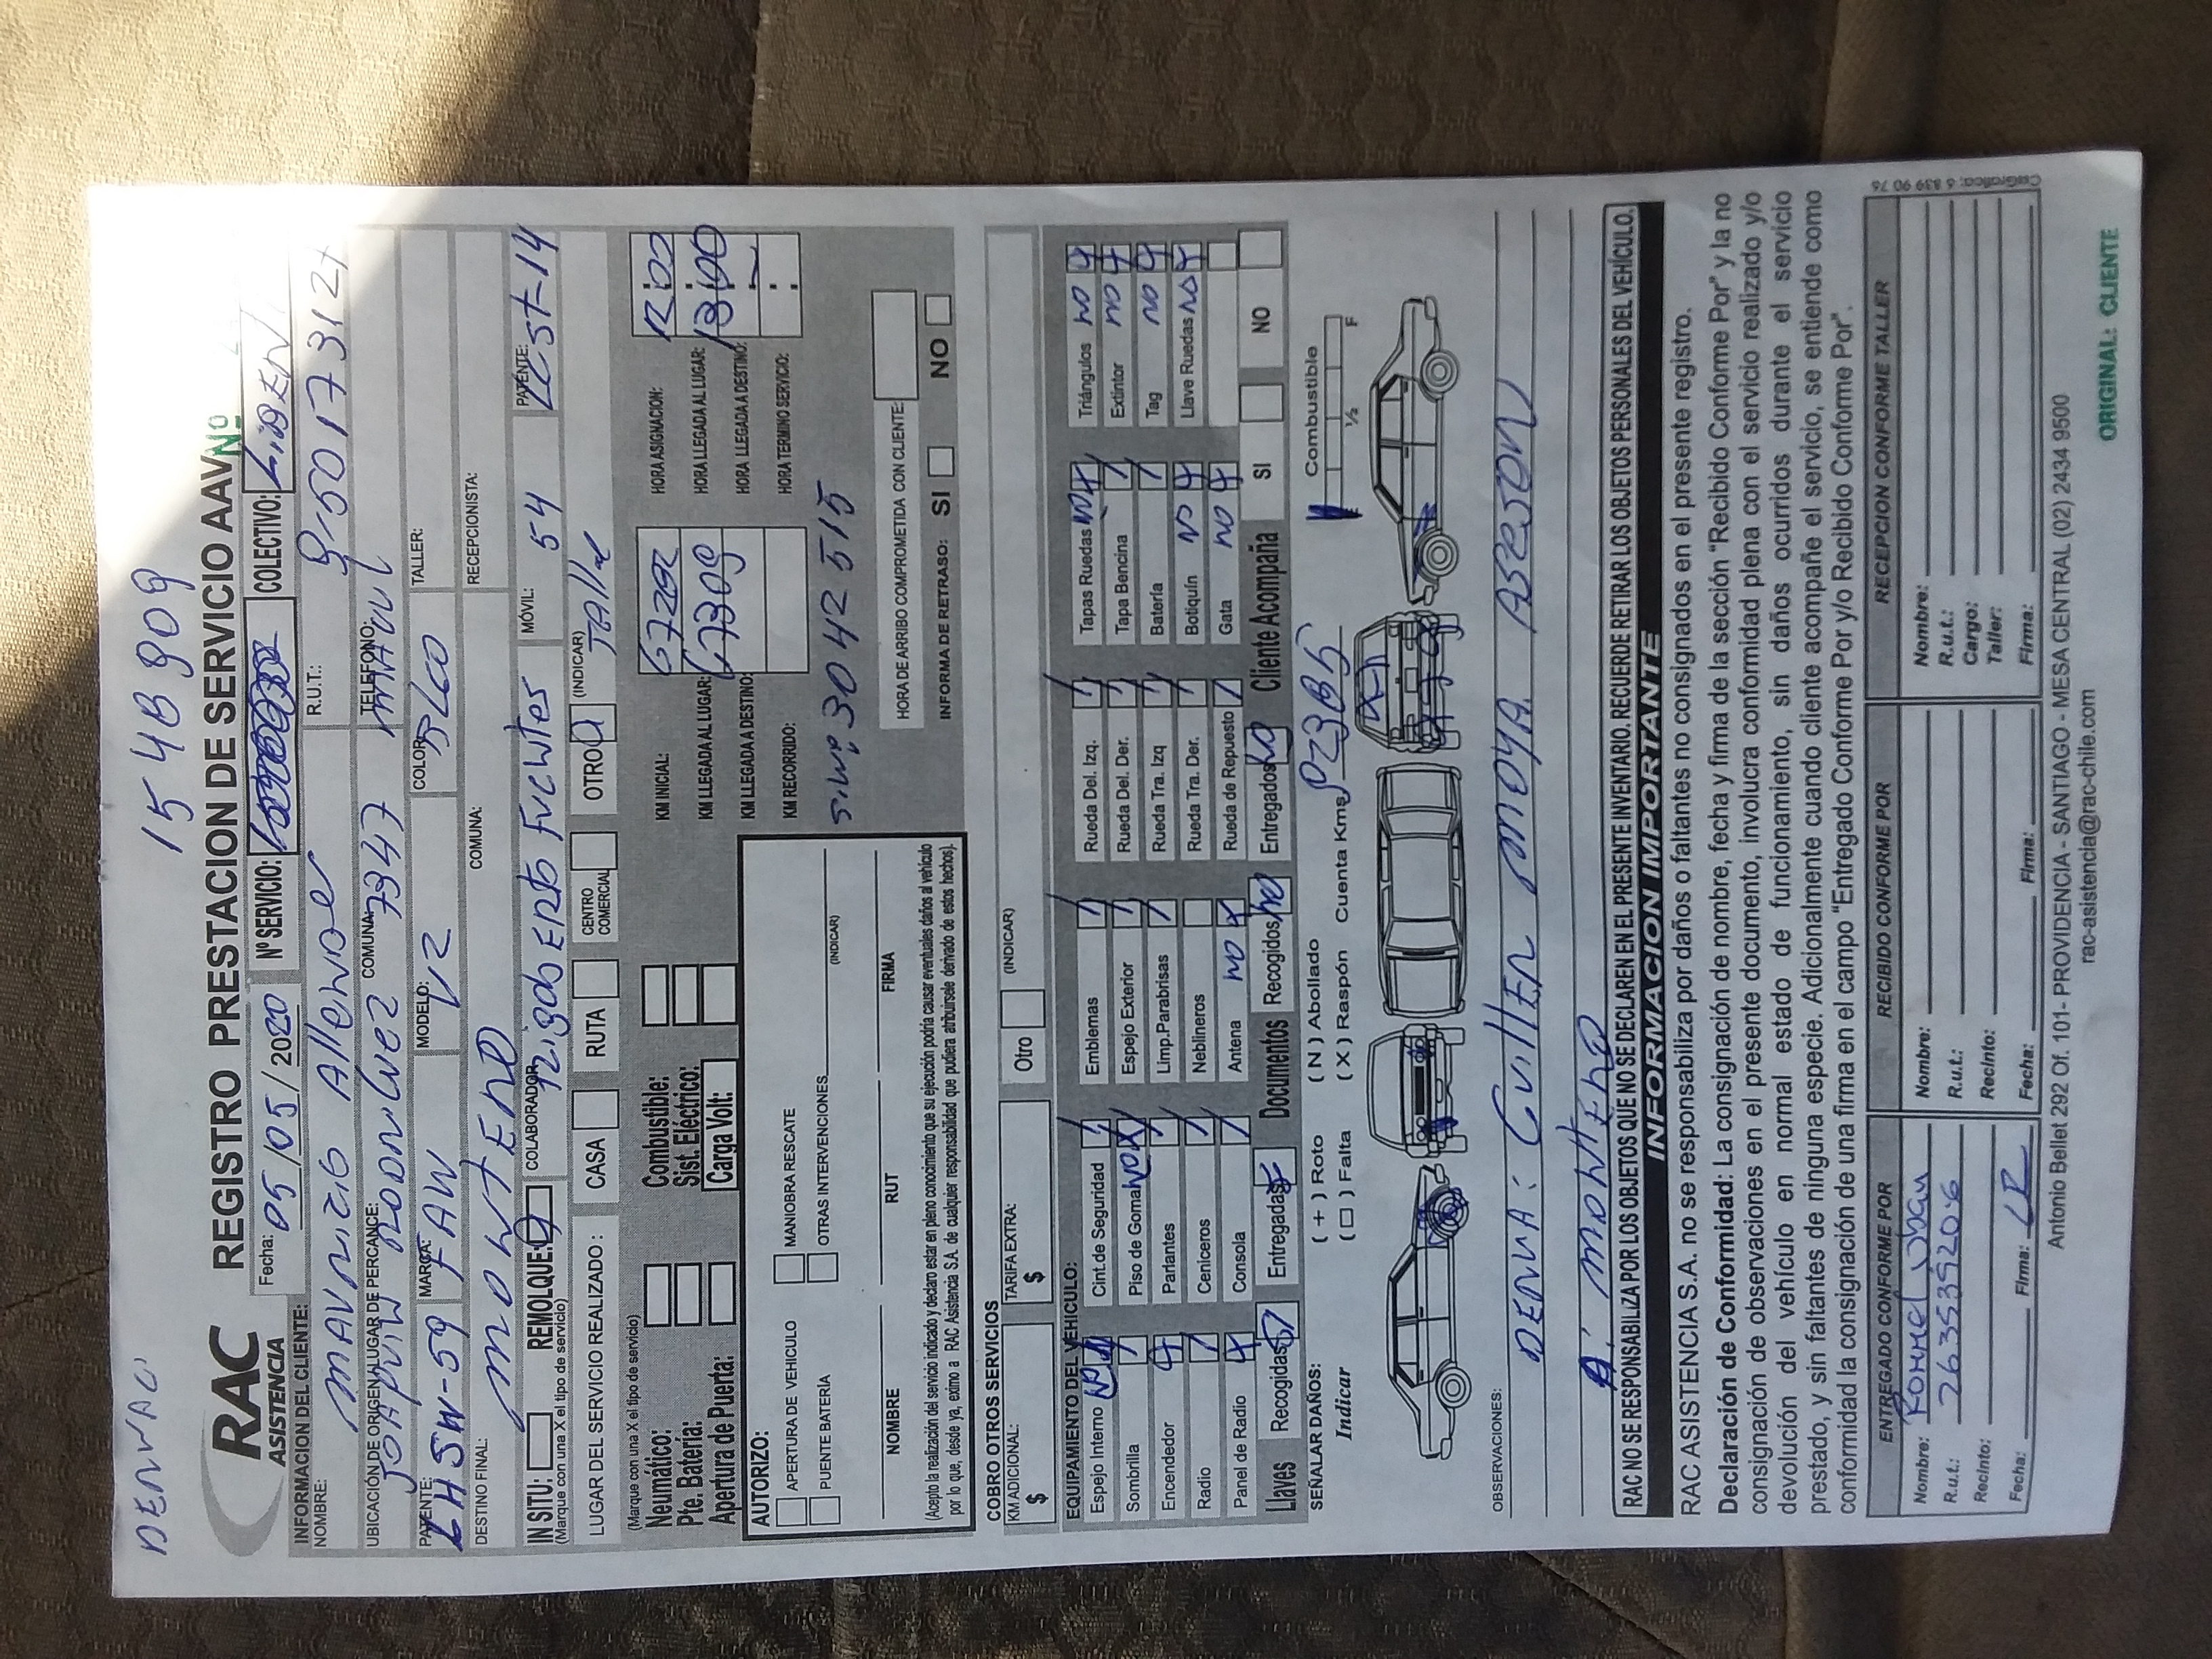 DENVACI 1548909
RAC
ASISTENCIA
REGISTRO PRESTACION DE SERVICIO AAV
Nº
Fecha: 05/05/2020 Nº SERVICIO: COLECTIVO: LIDEN
INFORMACION DEL CLIENTE:
NOMBRE: MAURICIO Allende R.U.T.: 9-5017312
UBICACIÓN DE ORIGEN/LUGAR DE PERCANCE: JOAQUIN RODRIGUEZ 7347 COMUNA: MACUL TELEFONO:
PATENTE: LHSW-59 MARCA: FAW MODELO: V2 COLOR: BLCO TALLER:
DESTINO FINAL: MONTERO COMUNA: RECEPCIONISTA:
IN SITU: REMOLQUE: COLABORADOR: Rigoberto Fuentes MÓVIL: 54 PATENTE: LCST-14
(Marque con una X el tipo de servicio)
LUGAR DEL SERVICIO REALIZADO: CASA RUTA CENTRO COMERCIAL OTRO (INDICAR) Taller
(Marque con una X el tipo de servicio)
Neumático: Combustible: KM INICIAL: 67292 HORA ASIGNACION: 12:00
Pte. Batería: Sist. Eléctrico: KM LLEGADA AL LUGAR: 67309 HORA LLEGADA AL LUGAR: 13:00
Apertura de Puerta: Carga Volt: KM LLEGADA A DESTINO: HORA LLEGADA A DESTINO:
KM RECORRIDO: HORA TERMINO SERVICIO:
3042515
AUTORIZO:
APERTURA DE VEHICULO MANIOBRA RESCATE
PUENTE BATERÍA OTRAS INTERVENCIONES (INDICAR)
NOMBRE RUT FIRMA
(Acepto la realización del servicio indicado y declaro estar en pleno conocimiento que su ejecución podría causar eventuales daños al vehículo
por lo que, desde ya, eximo a RAC Asistencia S.A. de cualquier responsabilidad que pudiera atribuírsele derivado de estos hechos).
HORA DE ARRIBO COMPROMETIDA CON CLIENTE:
INFORMA DE RETRASO: SI NO
COBRO OTROS SERVICIOS
KM ADICIONAL: $ TARIFA EXTRA: $ Otro (INDICAR)
EQUIPAMIENTO DEL VEHICULO:
Espejo Interno Cint. de Seguridad Emblemas Rueda Del. Izq. Tapas Ruedas NO Triángulos NO
Sombrilla Piso de Goma NO Espejo Exterior Rueda Del. Der. Tapa Bencina Extintor NO
Encendedor Parlantes Limp.Parabrisas Rueda Tra. Izq Batería Tag NO
Radio Ceniceros Neblineros Rueda Tra. Der. Botiquín NO Llave Ruedas NO
Panel de Radio Consola Antena NO Rueda de Repuesto Gata NO
Llaves Recogidas SI Entregadas Documentos Recogidos NO Entregados NO Cliente Acompaña SI NO
SEÑALAR DAÑOS: ( + ) Roto ( N ) Abollado Combustible
Indicar ( □ ) Falta ( X ) Raspón Cuenta Kms. ½ F
OBSERVACIONES: DENVA: Guillen MOYA Asesor
A: MONTERO
RAC NO SE RESPONSABILIZA POR LOS OBJETOS QUE NO SE DECLAREN EN EL PRESENTE INVENTARIO. RECUERDE RETIRAR LOS OBJETOS PERSONALES DEL VEHÍCULO.
INFORMACION IMPORTANTE
RAC ASISTENCIA S.A. no se responsabiliza por daños o faltantes no consignados en el presente registro.
Declaración de Conformidad: La consignación de nombre, fecha y firma de la sección "Recibido Conforme Por" y la no
consignación de observaciones en el presente documento, involucra conformidad plena con el servicio realizado y/o
devolución del vehículo en normal estado de funcionamiento, sin daños ocurridos durante el servicio
prestado, y sin faltantes de ninguna especie. Adicionalmente cuando cliente acompañe el servicio, se entiende como
conformidad la consignación de una firma en el campo "Entregado Conforme Por y/o Recibido Conforme Por".
ENTREGADO CONFORME POR RECIBIDO CONFORME POR RECEPCION CONFORME TALLER
Nombre: Rommel Nombre: Nombre:
R.u.t.: 263539206 R.u.t.: R.u.t.:
Recinto: Recinto: Cargo:
Taller:
Fecha: Firma: Fecha: Firma: Firma:
Antonio Bellet 292 Of. 101- PROVIDENCIA - SANTIAGO - MESA CENTRAL (02) 2434 9500
rac-asistencia@rac-chile.com
ORIGINAL: CLIENTE
CsiGrafica: 6 839 90 76